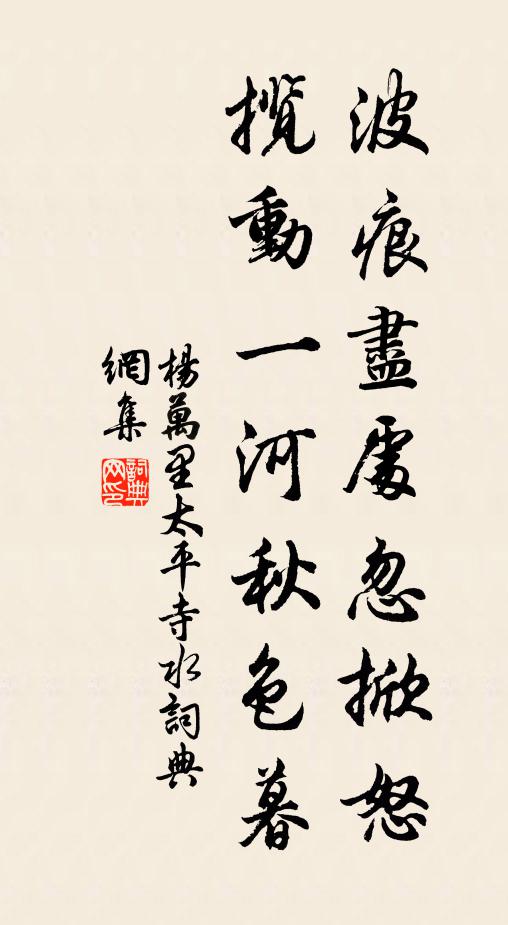 波痕盡處忽掀怒
攪動一河秋色暮
楊萬里太平寺水詞典
網集
詞典
网印